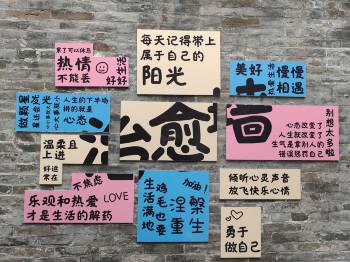 累了可以休息
热情
不能丢
好好生活
每天记得带上
属于自己的
阳光
美好
生活
慢慢
相遇
人生的下半场
拼的就是
心态
治愈
别想太多啦
心态改变了
人生就改变了
生气是拿别人的
错误惩罚自己
温柔且
上进
好运
常在
不焦虑
乐观和热爱 LOVE
才是生活的解药
生活满地
鸡毛也要
加油!
倾听心灵声音
放飞快乐心情
勇于
做自己